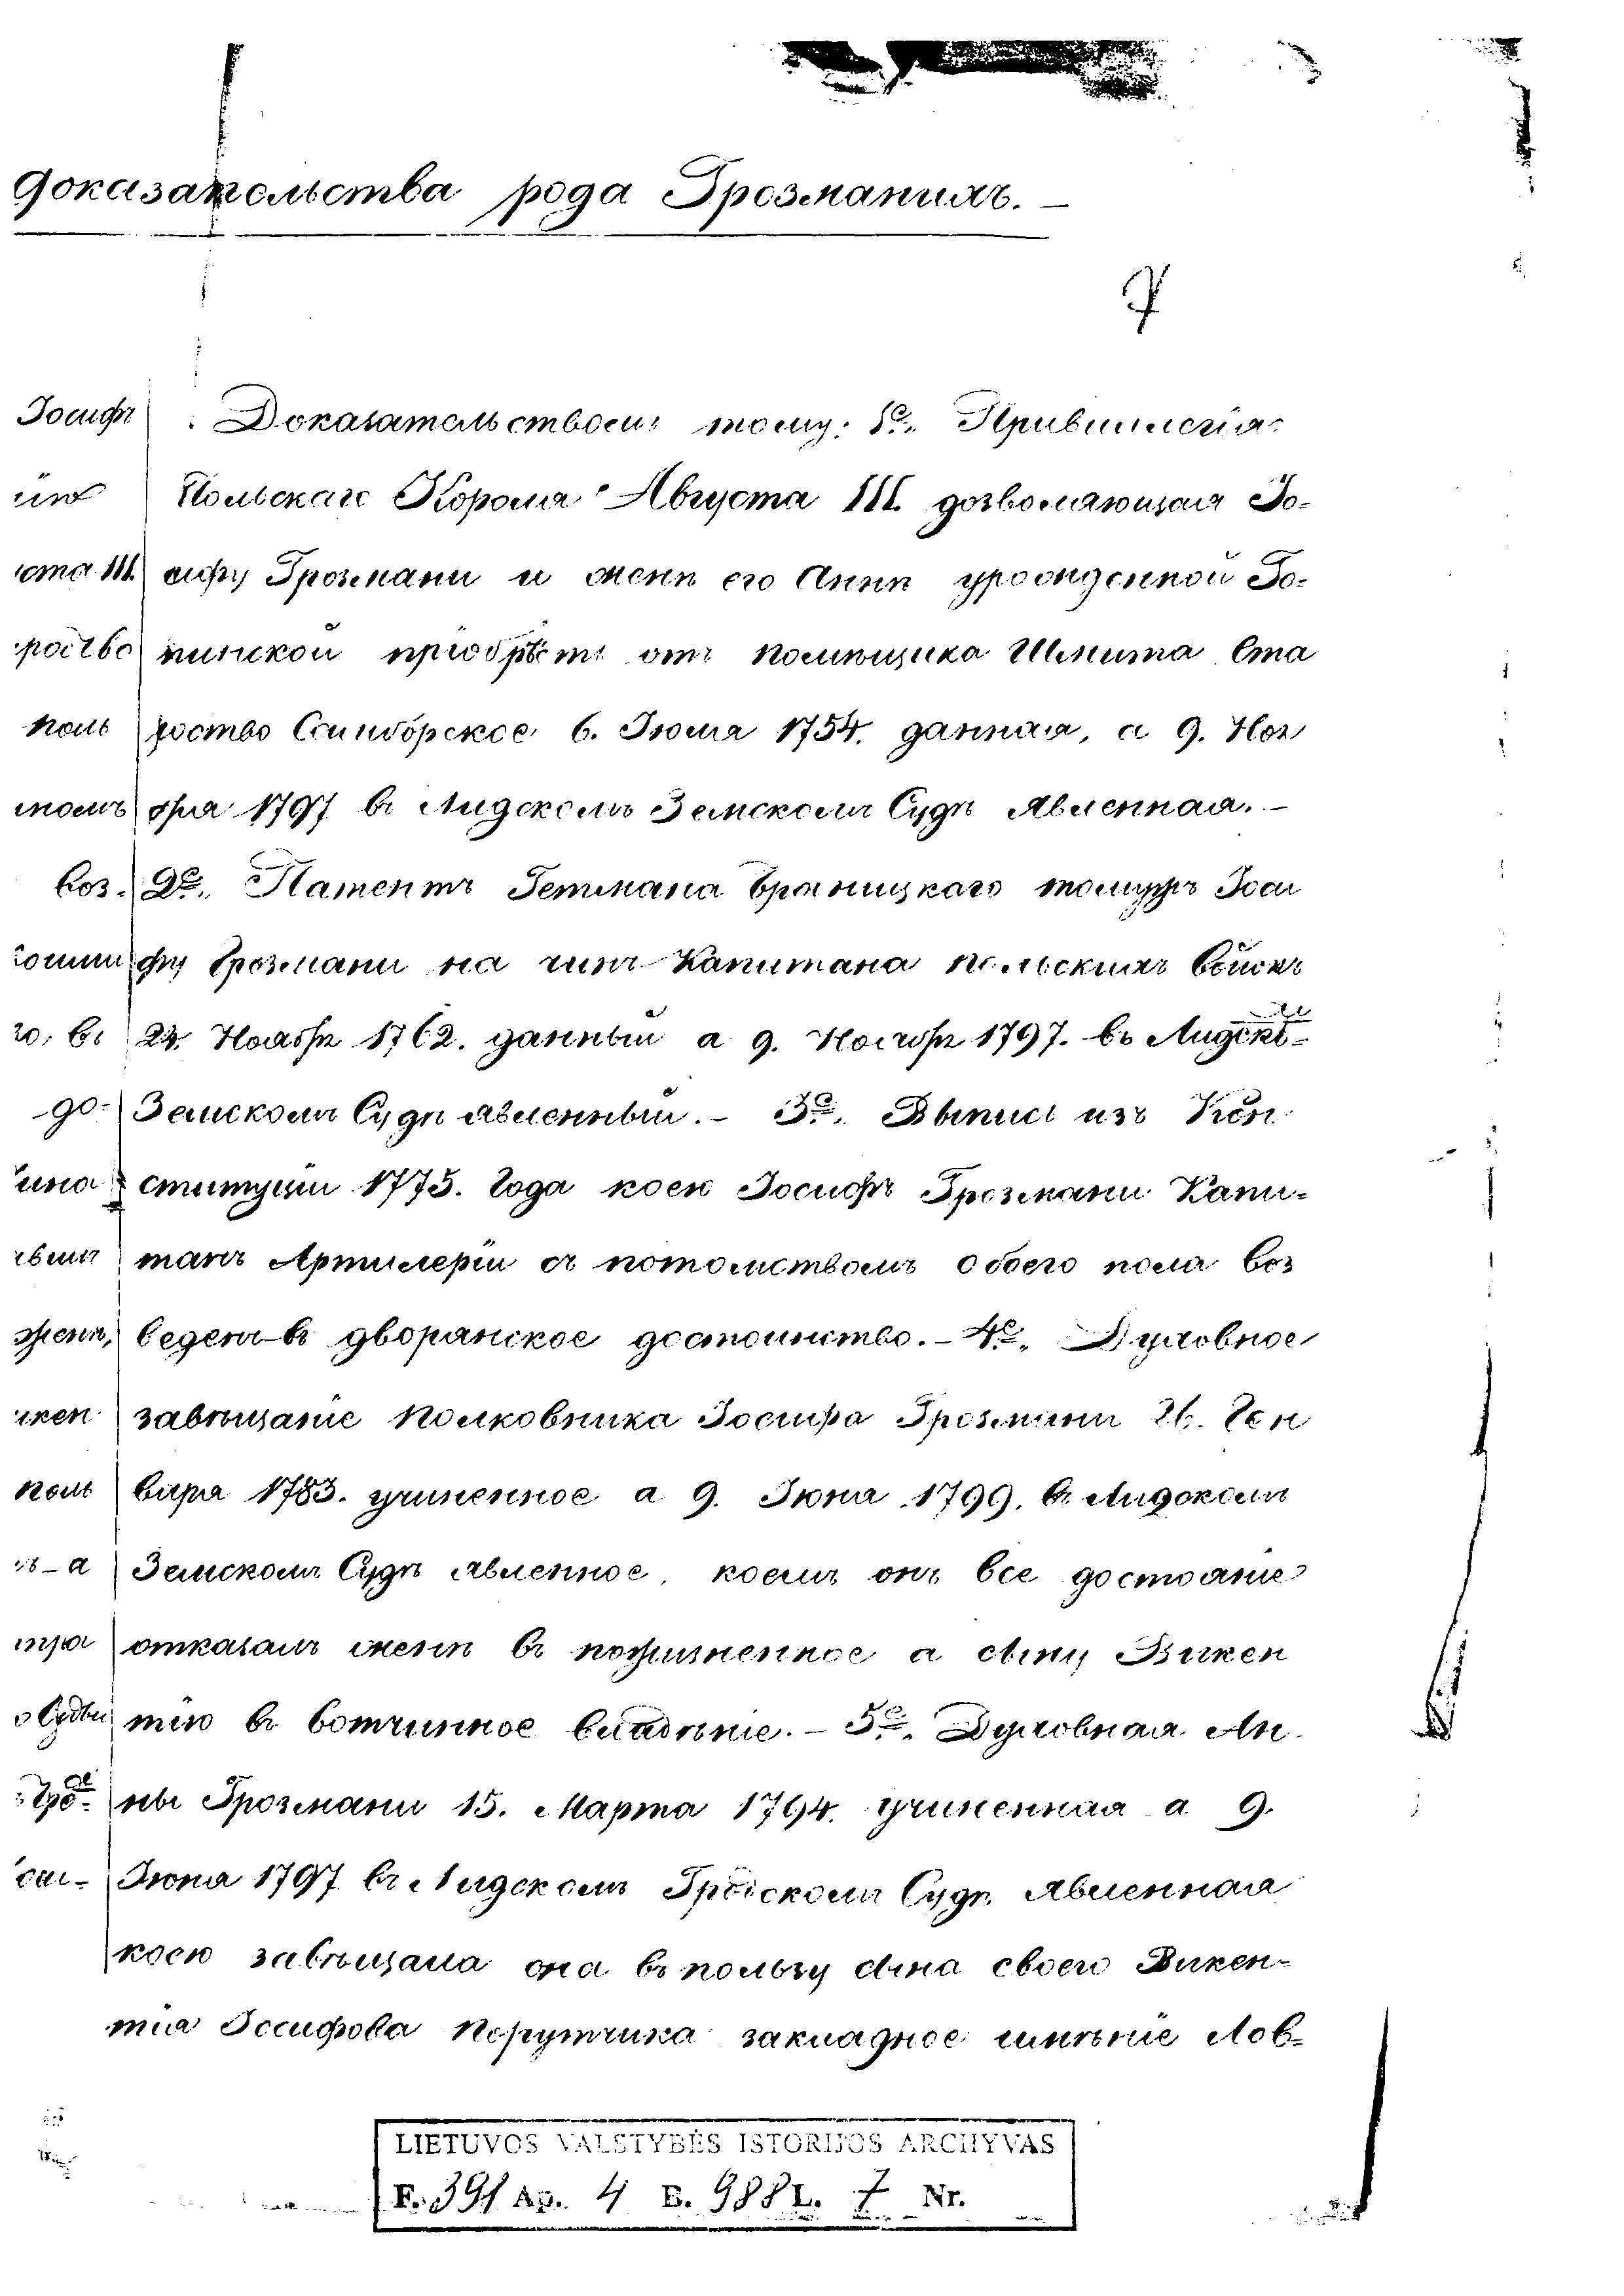 доказательства рода Грозманихъ. —
7
Іосифъ Доказательствомъ тому: 1е, Привиллегія
Польскаго Короля Августа III. дозволяющая Іо-
ста III. сифу Грозмани и женѣ его Аннѣ урожденной Го-
нинской пріобрѣсть отъ помѣщика Шмита Ста
поль роство 6. Іюля 1754. данная, а 9. Ноя
томъ бря 1797 въ Лидскомъ Земскомъ Судѣ явленная. —
воз- 2е, Патентъ Гетмана Браницкаго томужъ Іоси
фу Грозмани на чинъ Капитана польскихъ войскъ
го, въ 22. Ноября 1762. данный а 9. Ноября 1797. въ Лидско-
до- Земскомъ Судѣ явленный. — 3е, Выпись изъ Кон
ституціи 1775. Года коею Іосифъ Грозмани Капи-
танъ Артилеріи съ потомствомъ обоего пола воз
женѣ, веденъ въ дворянское достоинство. — 4е, Духовное
завѣщаніе полковника Іосифа Грозмани 26. Ген
поль варя 1783. учиненное а 9. Іюня 1799. въ Лидскомъ
а Земскомъ Судѣ явленное, коемъ онъ все достояніе
отказалъ женѣ въ пожизненное а сыну Викен
тію въ вотчинное владѣніе. — 5е, Духовная Ан-
ны Грозмани 15. Марта 1794. учиненная а 9.
Іюня 1797 въ Лидскомъ Гродскомъ Судѣ явленная
коею завѣщала она въ пользу сына своего Викен-
тія Іосифова Порутчика закладное имѣніе Лов-
LIETUVOS VALSTYBĖS ISTORIJOS ARCHYVAS
F. 391 Ap. 4 B. 988 L. 7 Nr.